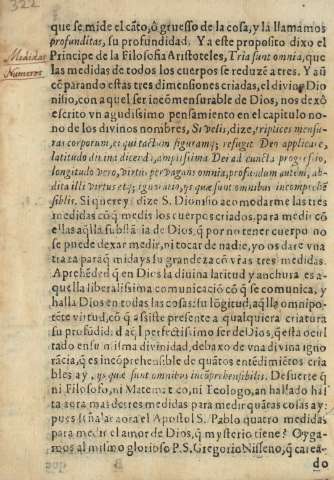 322
que se mide el cãto, ò gruesso de la cosa, y la llamamos
profunditas, su profundidad. Y a este proposito dixo el
Medidas
Principe de la Filosofia Aristoteles, Tria sunt omnia, que
Numeros
las medidas de todos los cuerpos se reduzē a tres. Y assi
cõparando estas tres dimensiones criadas, el divino Dio
nisio, con aquel ser incõmensurable de Dios, nos dexò
escrito vn agudissimo pensamiento en el capitulo no-
no de los divinos nombres, Si velis, dize, triplices mensu-
ras corporum, et qui tactum figuramq; refugit Deo applicare,
latitudo divina dicenda, amplissima Dei ad cuncta progressio,
longitudo vero, virtus pervagans omnia, profundum autem, ab-
dita illi virtus et ignoratio, ijs quæ sunt omnibus incomprehē
sibilis. Si querey dize S. Dionisio acomodarme las tres
medidas cõ q medis los cuerpos criados, para medir cõ
ellas aq̃lla substãcia de Dios, q̃ por no tener cuerpo no
se puede dexar medir, ni tocar de nadie, yo os darè vna
traza para q̃ midays su grandeza cõ vr̃as tres medidas.
Aprehēded q̃ en Dios la diuina latitud y anchura es a-
quella liberalissima comunicaciõ cõ q̃ se comunica, y
halla Dios en todas las cosas: su lõgitud, aq̃lla omnipo-
tēte virtud, cõ q̃ assiste presente a qualquiera criatura
su profũdidad, aq̃l perfectissimo ser de Dios, q̃ esta ocul
tado en su misma divinidad, debaxo de vna divina igno
rãcia, q̃ es incõprehensible de quãtos entēdimiētos cria
bles ay, ijs quæ sunt omnibus incõprehensibilis. De suerte q̃
ni Filosofo, ni Matematico, ni Teologo, an hallado has
ta aora mas de tres medidas para medir quãtas cosas ay:
pues señalar aora el Apostol S. Pablo quatro medidas
para medir el amor de Dios, q̃ mysterio tiene? Oyga-
mos al mismo glorioso P. S. Gregorio Nisseno, q̃ carea-
do